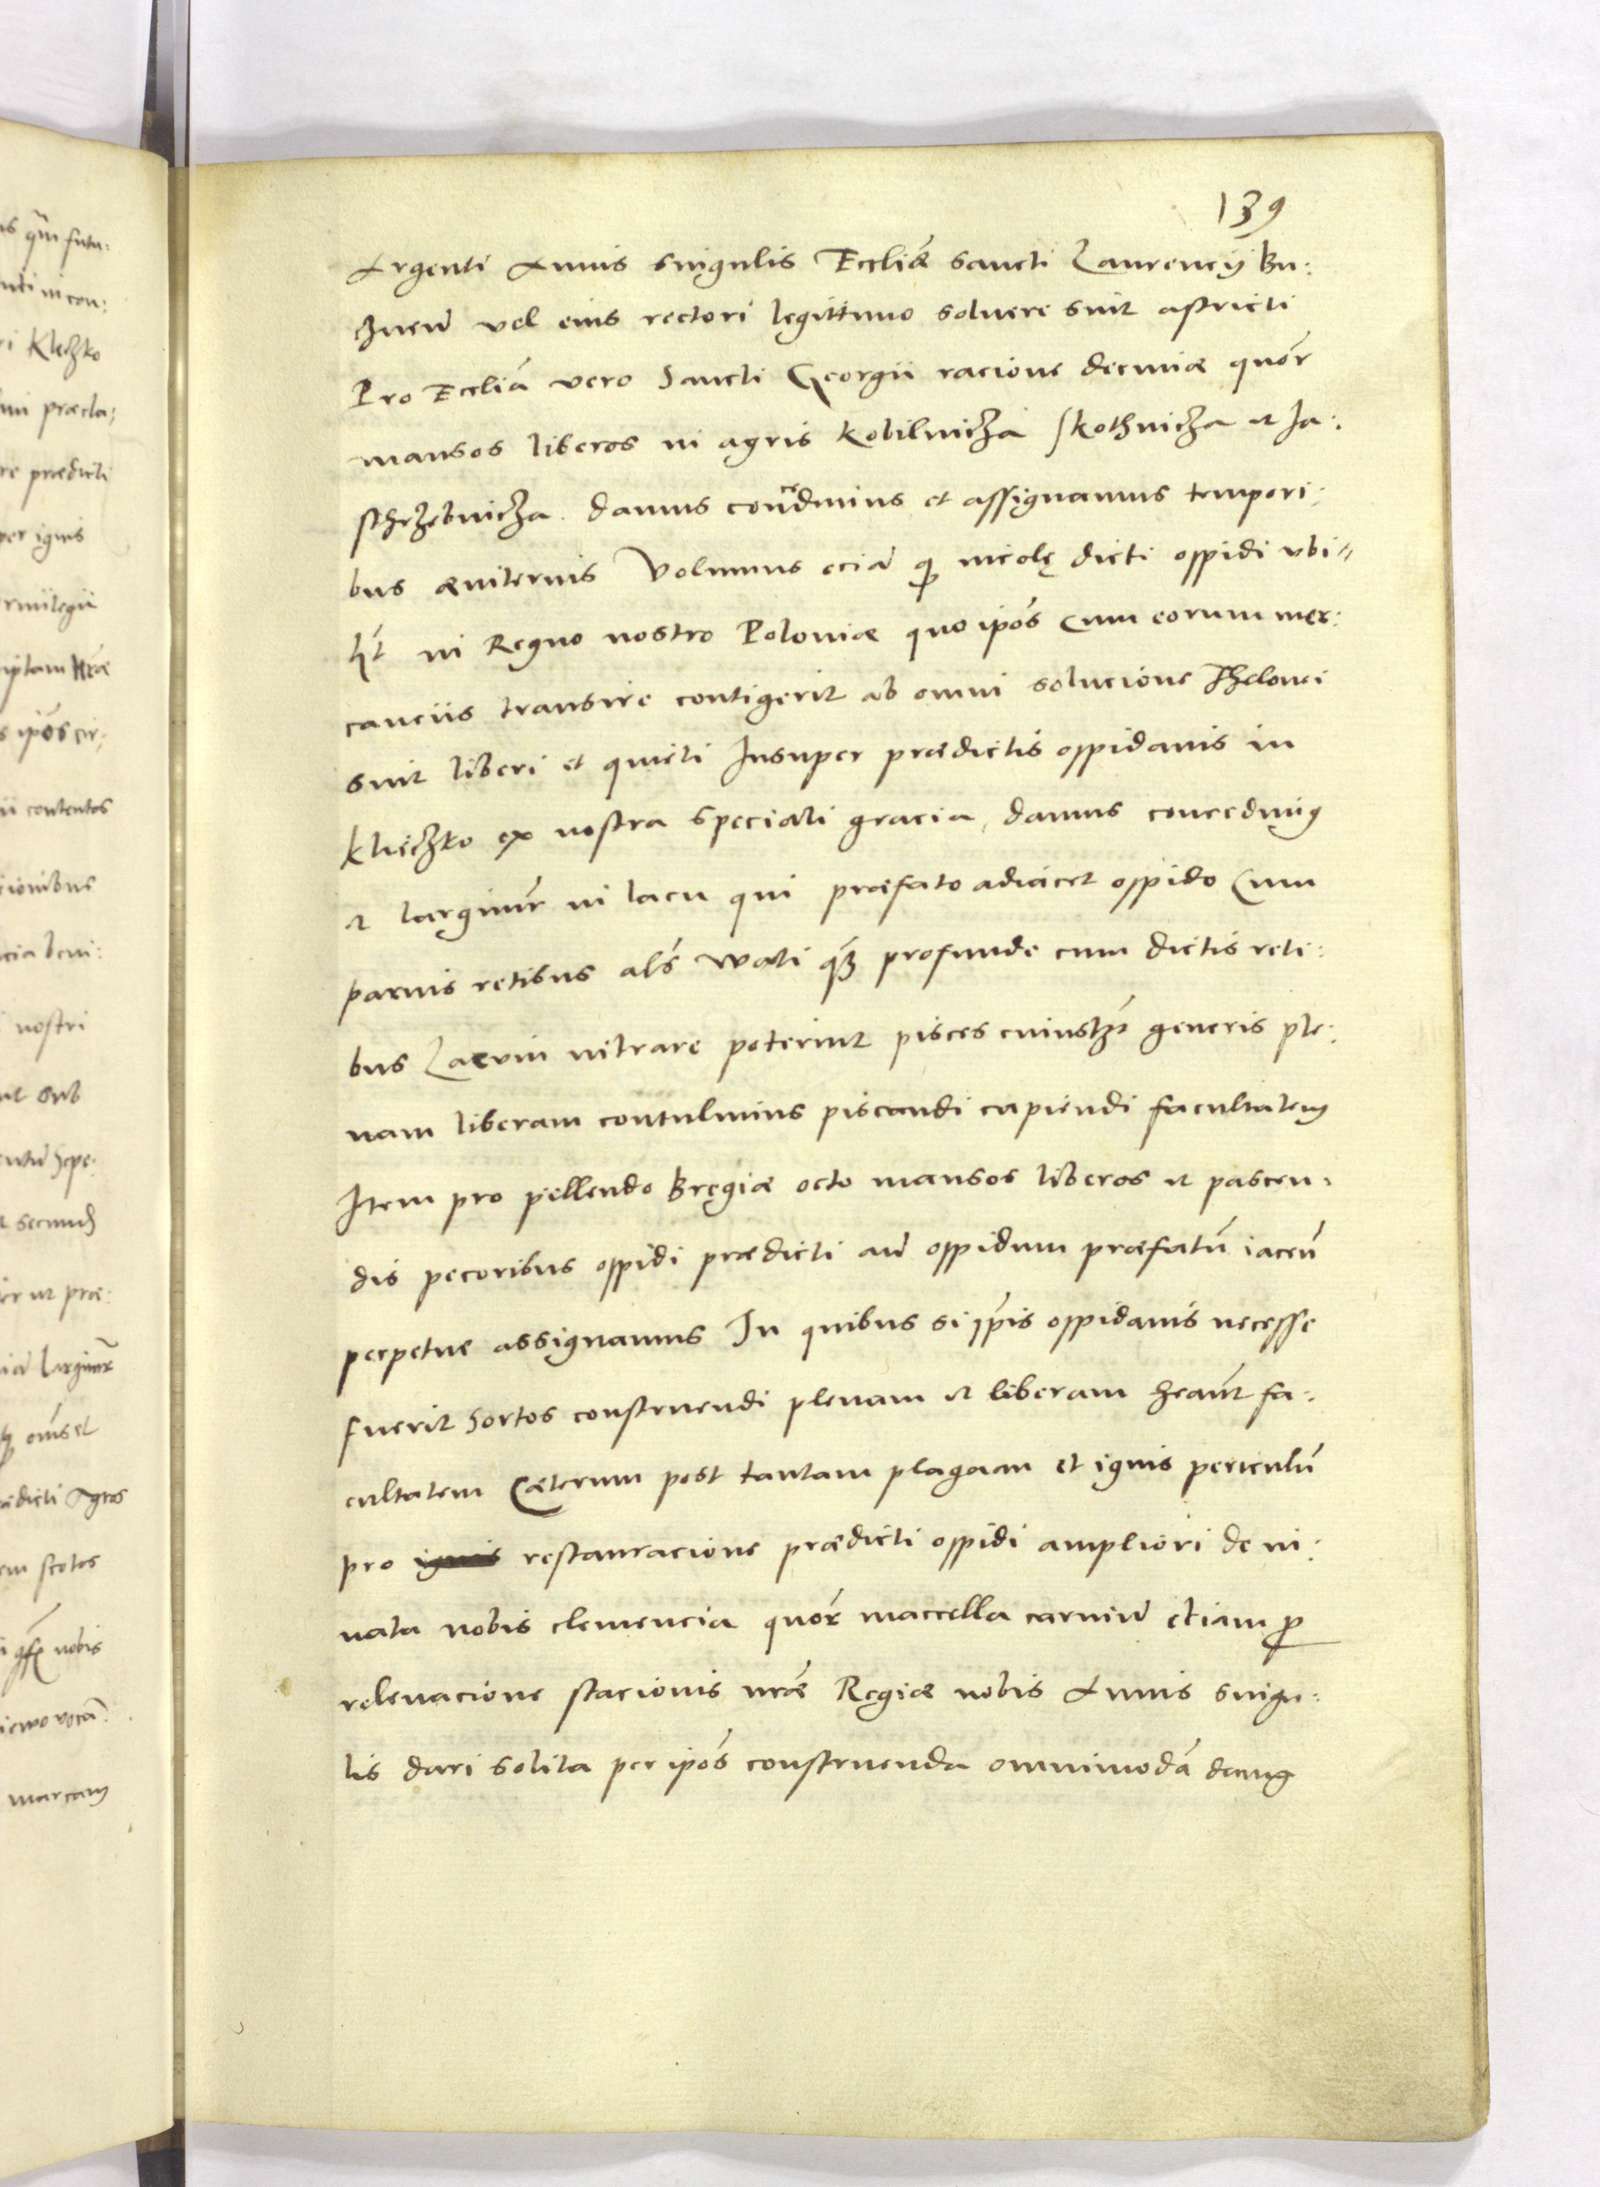 139
Argenti Annis singulis Eccliæ sancti Laurencij Bu:
chneñ vel eius rectori legittimo soluere sint astricti
Pro Ecclīa vero Sancti Georgii racione decimæ quōr
mansos liberos in agris Kobilnicza Skothnicza et Ja:
sthrzebnicza. damus concedimus et assignamus tempori:
bus æuiternis Volumus eciā qȝ incolę dicti oppidi vbi
lt in Regno nostro Poloniæ quo ipōs cum eorum mer:
canciis transire contigerit ab omni solucione Thelonei
sint liberi et quieti Insuper prædictis oppidanis in
Kleczko ex nostra speciali gracia, damus concedimus
et largimur in lacu qui præfato adiacet oppido Cum
paruis retibus als wati qȝ profunde cum dictis reti:
bus Lacum intrare poterint pisces cuiuscȝ generis ple:
nam liberam contulimus piscandi capiendi facultatem
Item pro pellendo Bręgiæ octo mansos liberos et pascen:
dis pecoribus oppidi prædicti añ oppidum præfatū iaceñ
perpetue assignamus In quibus si ipis oppidanis necesse
fuerit hortos construendi plenam et liberam heant fa:
cultatem Cæterum post tantam plagam et ignis periculū
pro ignis restauracione prædicti oppidi ampliori de in:
nata nobis clemencia quōr maccella carniū etiam p
releuacione stacionis nræ Regiæ nobis Annis singu:
lis dari solita per ipōs construenda omnimodā damus
is qm̄ futu:
ri Kleczko
mi præcla:
re prædicti
per ignis
riuilegii
s ipōs cir:
ii contentos
cionibus
nostri
et sub
er ut præ:
iā largimr
oms et
ædicti Agros
em scotos
nobis
marcam